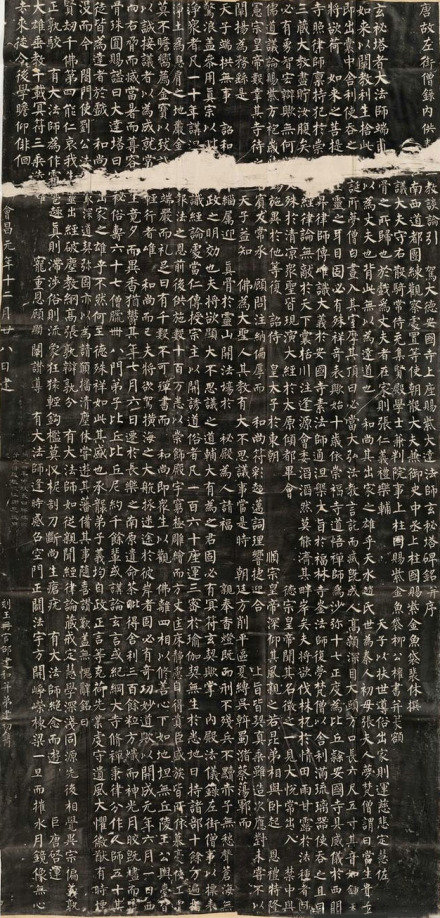 唐故左街僧錄內供教談論引駕大德安國寺上座賜紫大達法師玄秘塔碑銘并序
南西道都團練觀察處置等使朝散大夫兼御史中丞上柱國賜紫金魚袋裴休撰
議大夫守右散騎常侍充集賢殿學士兼判院事上柱國賜紫金魚袋柳公權書并篆額
玄秘塔者大法師端甫骨之所歸也於戲為丈夫者在家則張仁義禮樂輔天子以扶世導俗出家則運慈悲定慧佐
如來以闡教利生捨此以為丈夫也背此無以為達道也和尚其出家之雄乎天水趙氏世為秦人初母張夫人夢梵僧謂曰當生貴子
即出囊中舍利使吞之誕所夢僧白晝入其室摩其頂曰必當大弘法教言訖而滅既成人高顙深目大頤方口長六尺五寸其音如鐘夫
將欲荷如來之菩提生靈之耳目固必有殊祥奇表歟始十歲依崇福寺道悟禪師為沙彌十七正度為比丘隸安國寺具威儀於西明
寺照律師稟持犯於崇寺昇律師傳唯識大義於安國寺素法師通涅槃大旨於福林寺崟法師復夢梵僧以舍利滿琉璃器使吞之且曰
三藏大教盡貯汝腹矣經律論無敵於天下囊括川注逢源會委滔滔然莫能濟其畔岸矣夫將欲伐株杌於情田雨甘露於法種者固
必有勇智宏辯歟無何殊於清涼眾聖皆現演大經於太原傾都畢會德宗皇帝聞其名徵之一見大悅常出入禁中與儒
道議論賜紫方袍歲時施異於他等復詔侍皇太子於東朝順宗皇帝深仰其風親之若昆弟相與臥起恩禮特隆
憲宗皇帝數幸其寺待之賓友常承顧問注納偏厚而和尚符彩超邁詞理響捷迎合上旨皆契真乘雖造次應對未嘗不以
闡揚為務繇是天子益知佛為大聖人其教有大不思議事當是時朝廷方削平區夏縛吳斡蜀瀦蔡蕩鄆而
天子端拱無事詔和緇屬迎真骨於靈山開法場於秘殿為人請福親奉香燈既而刑不殘兵不黷赤子無愁聲蒼海無
驚浪蓋參用真宗以毗政之明效也夫將欲顯大不思議之道輔大有為之君固必有冥符玄契歟掌內殿法儀錄左街僧事以摽表
淨眾者凡一十年講涅識經論處當仁傳授宗主以開誘道俗者凡一百六十座運三密於瑜伽契無生於悉地日持諸部十餘萬遍指
淨土為息肩之地嚴金報法之恩前後供施數十百萬悉以崇飾殿宇窮極雕繪而方丈匡床靜慮自得貴臣盛族皆所依慕豪俠工賈
莫不瞻嚮薦金寶以致端嚴而禮足日有千數不可殫書而和尚即眾生以觀佛離四相以修善心下如地坦無丘陵王公輿臺皆
以誠接議者以為成就常輕行者唯和尚而已夫將欲駕橫海之大航拯迷途於彼岸者固必有奇功妙道歟以開成元年六月一日西
向右脅而滅當暑而尊容生竟夕而異香猶鬱其年七月六日遷於長樂之南原遺命荼毗得舍利三百餘粒方熾而神光月皎既燼而靈
骨珠圓賜諡曰大達塔曰秘俗壽六十七僧臘卌八門弟子比丘比丘尼約千餘輩或講論玄言或紀綱大寺脩禪秉律分作人師五十其徒
皆為達者於戲和尚出家之雄乎不然何至德殊祥如此其盛也承襲弟子義均自政正言等克荷先業虔守遺風大懼徽猷有時堙
沒而今閤門使劉公法最深道契彌固亦以為請願播清塵休嘗遊其藩備其事隨喜讚歎蓋無愧辭銘曰
賢劫千佛第四能仁哀我生靈出經破塵教網高張孰辯孰分有大法師如從親聞經律論藏戒定慧學深淺同源先後相覺異宗偏義孰
正孰駁有大法師為作霜雹趣真則滯涉俗則流象狂猿輕鉤檻莫收柅制刀斷尚生瘡疣有大法師絕念而遊巨唐啟運
大雄垂教千載冥符三乘迭耀寵重恩顧顯闡讚導有大法師逢時感召空門正闢法宇方開崢嶸棟梁一旦而摧水月鏡像無心
去來徒令後學瞻仰徘徊
會昌元年十二月廿八日建
刻玉冊官邵建和并弟建初鐫